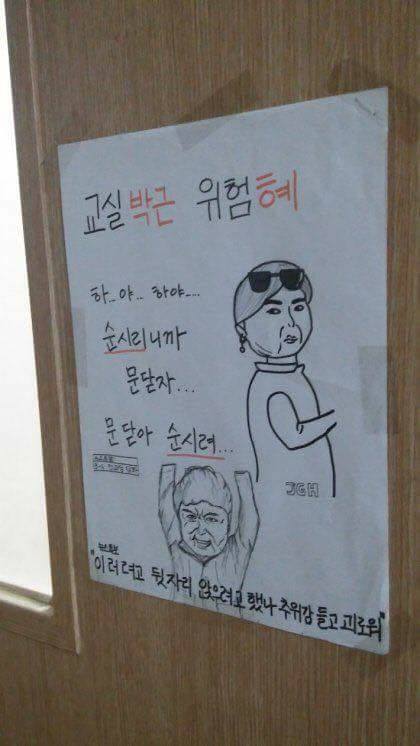 교실박근 위험혜
하..야.. 하야....
순시리니까
문닫자...
문닫아 순시려...
JGH
뉴스특보
"이러려고 뒷자리 앉으려고 했나 추위감 들고 괴로워"